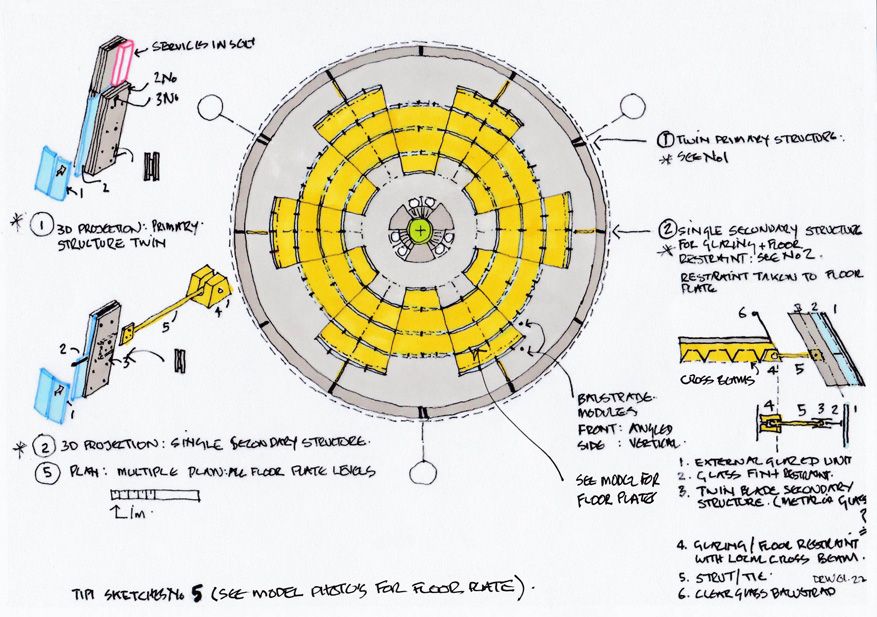 SERVICES IN SLOT
2No
3No
1
2
* 1 3D PROJECTION: PRIMARY
STRUCTURE TWIN
1 TWIN PRIMARY STRUCTURE:
* SEE No1
2 SINGLE SECONDARY STRUCTURE
* FOR GLAZING + FLOOR
RESTRAINT: SEE No 2.
RESTRAINT TAKEN TO FLOOR
PLATE
5
4
2
3
1
6
3 2 1
4 5
CROSS BEAMS
4 5 3 2 1
BALUSTRADE
MODULES
FRONT: ANGLED
SIDE: VERTICAL
SEE MODEL FOR
FLOOR PLATES
* 2 3D PROJECTION: SINGLE SECONDARY STRUCTURE.
5 PLAN: MULTIPLE PLAN: ALL FLOOR PLATE LEVELS
1m.
1. EXTERNAL GLAZED UNIT
2. GLASS FIN + RESTRAINT.
3. TWIN BLADE SECONDARY
STRUCTURE. (METAL OR GLASS
?
4. GLAZING / FLOOR RESTRAINT
WITH LOCAL CROSS BEAM.
5. STRUT/TIE.
6. CLEAR GLASS BALUSTRAD
TIPI SKETCHES No 5 (SEE MODEL PHOTO'S FOR FLOOR PLATE).